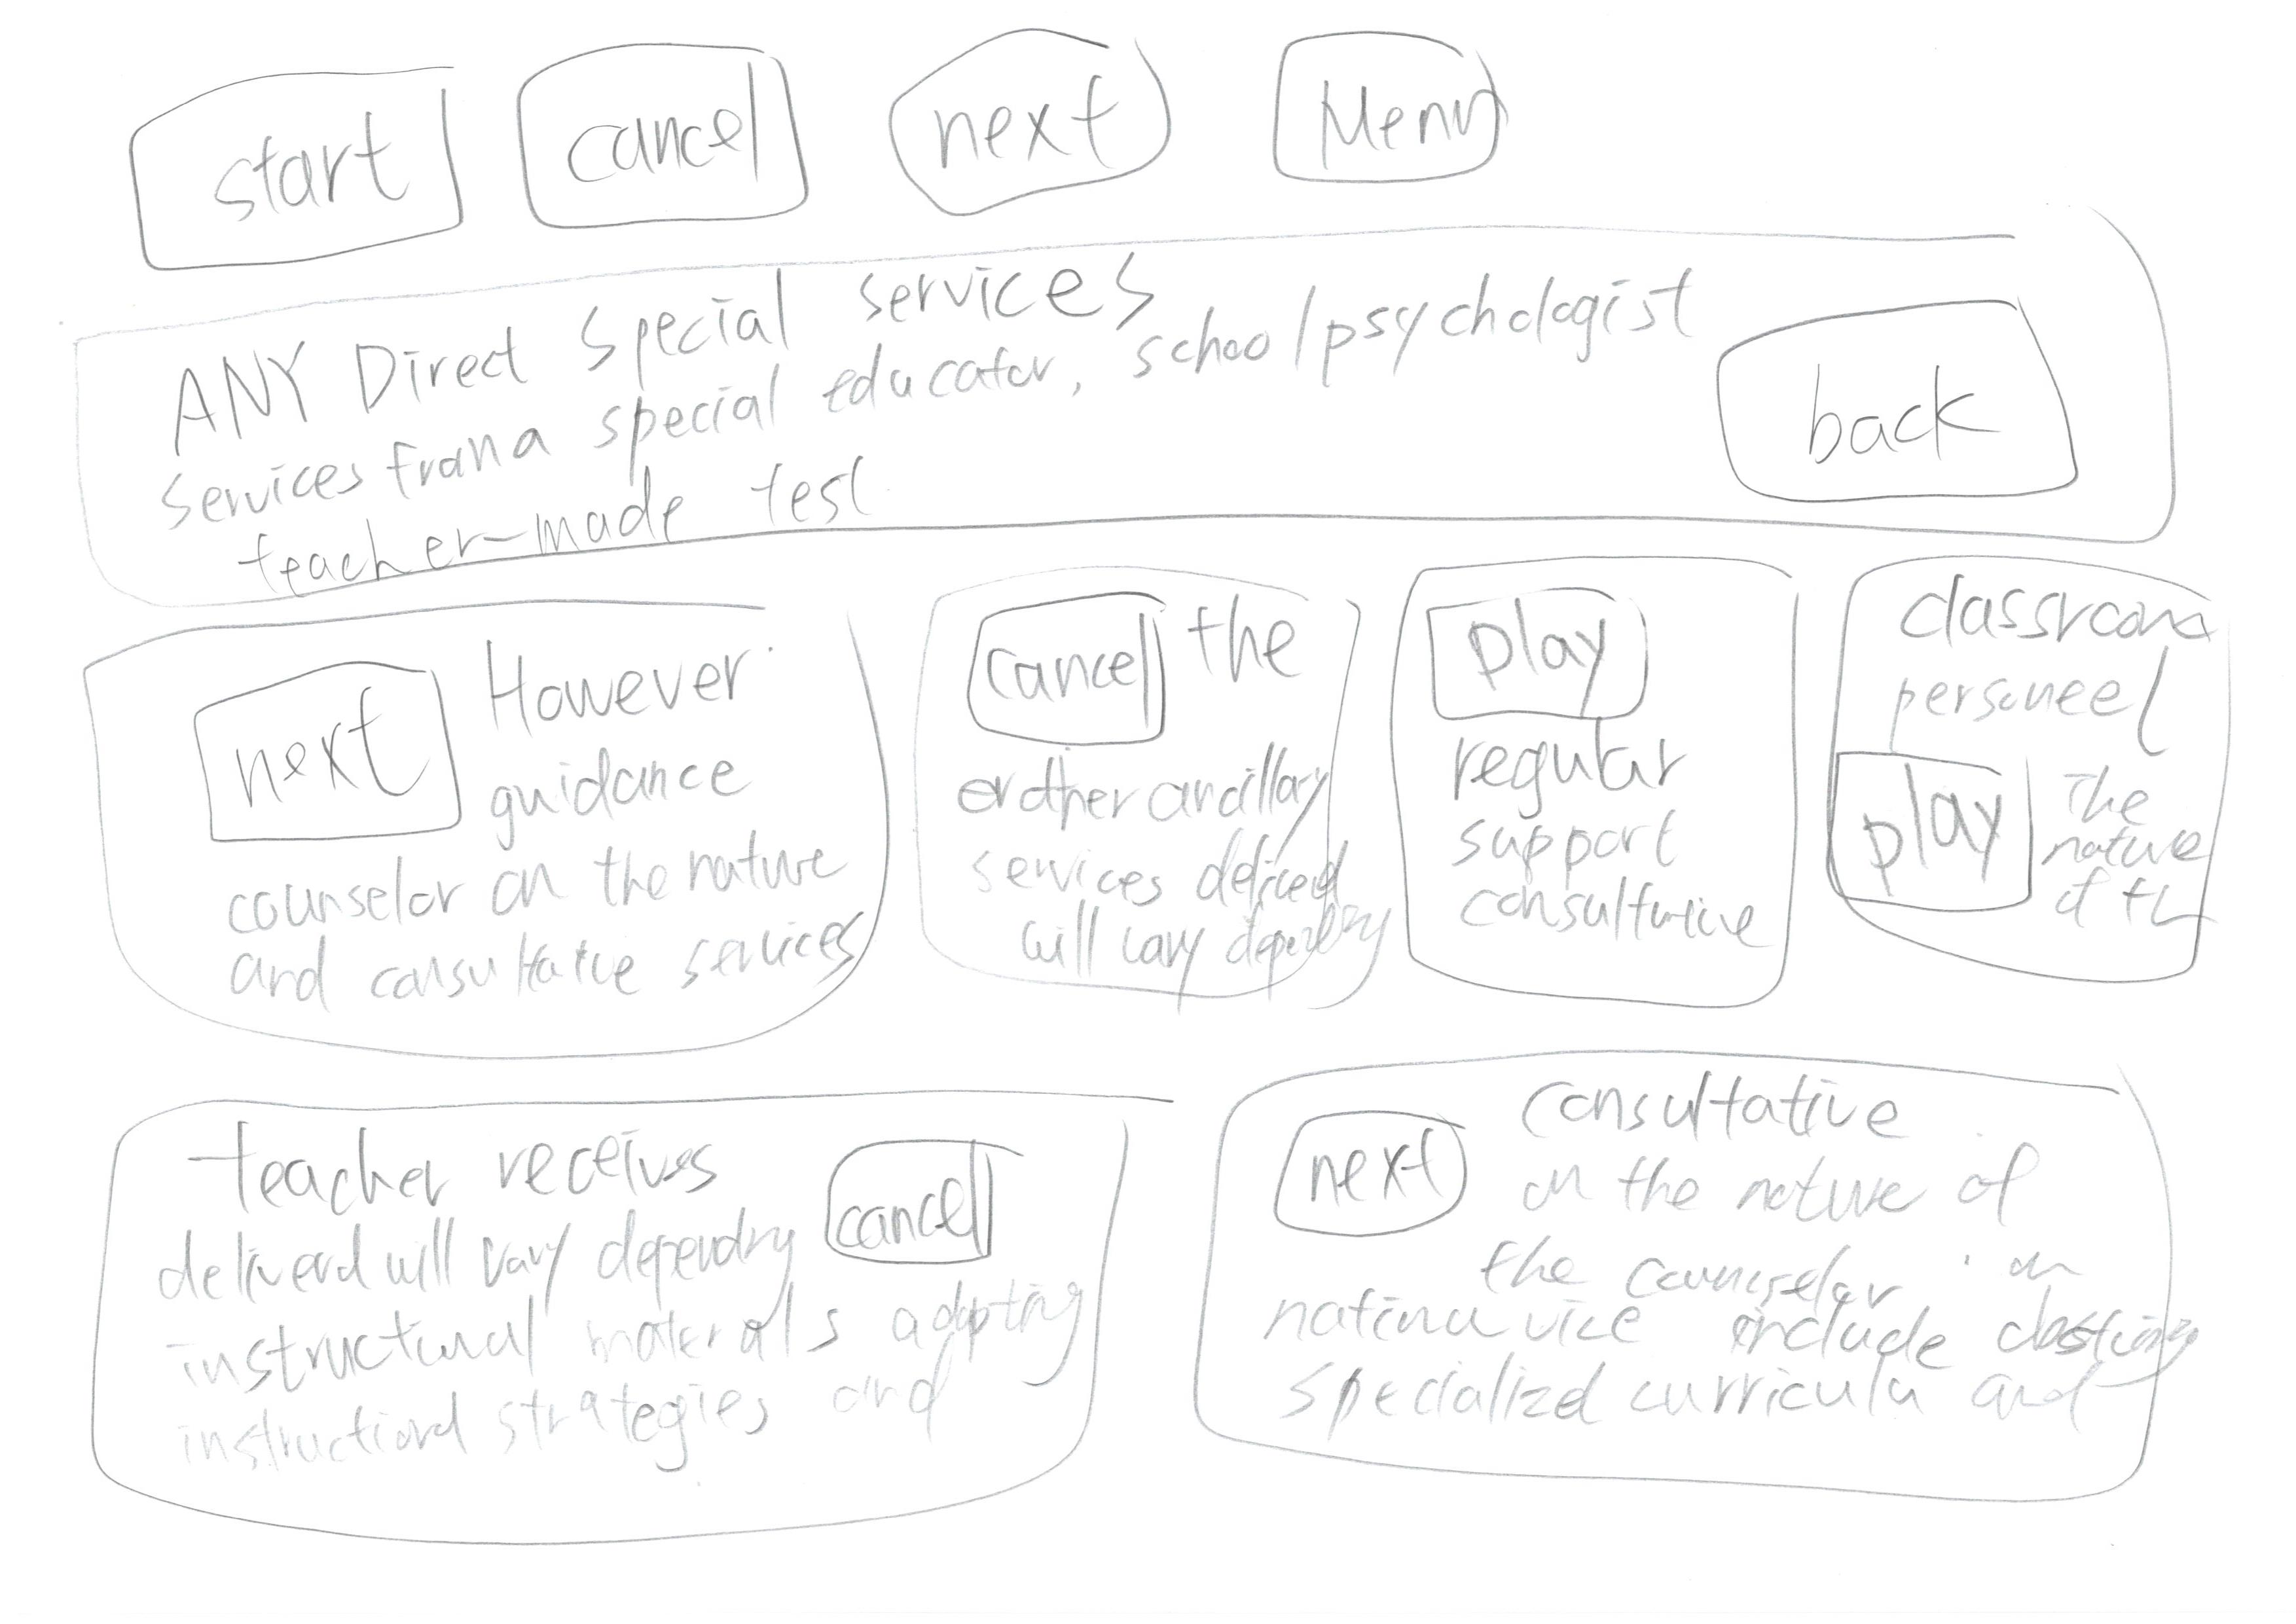 start
cancel
next
Menu
ANY Direct special services
services from a special educator, school psychologist
teacher-made test
back
next
However
guidance
counselor on the nature
and consultative services
cancel the
or other ancillary
services
will vary
play
regular
support
consultative
classroom
personeel
play
The
nature
of th
teacher receives
cancel
deliverd will vary depending
instructional materials adapting
instructional strategies and
next
consultative
on the nature of
the counselor on
include
specialized curricula and